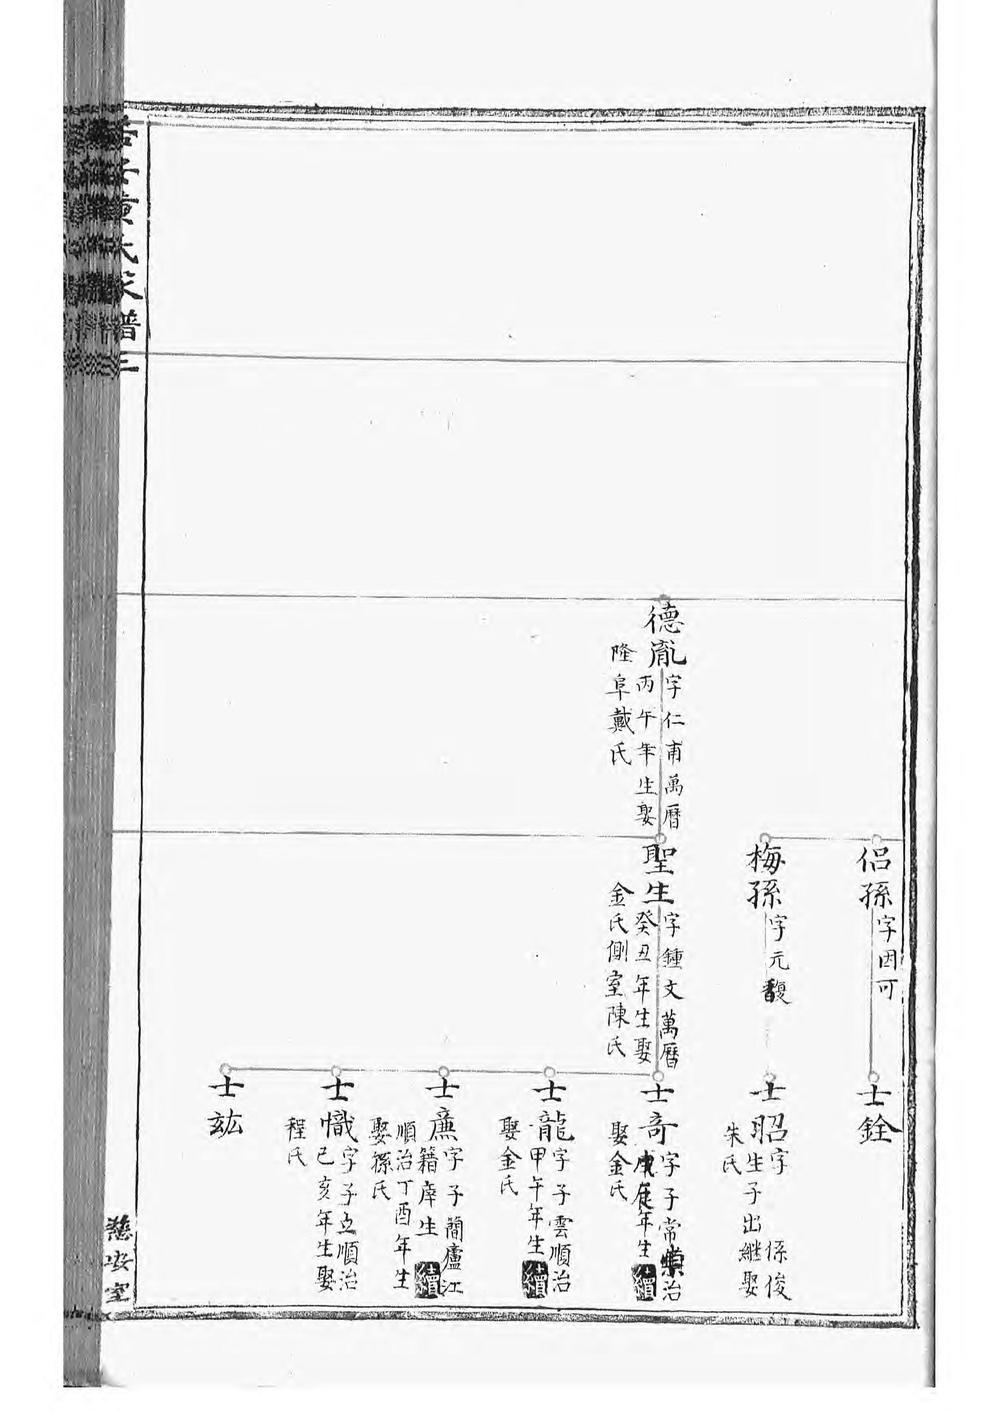 侣孫
字因可
士銓
梅孫
字元馥
士昭
字　係俊
生子出継娶
朱氏
德胤
字仁甫萬曆
丙午年生娶
隆阜戴氏
聖生
字鍾文萬曆
癸丑年生娶
金氏側室陳氏
士奇
字子常順治
年生
娶金氏
續
士龍
字子雲順治
甲午年生
娶金氏
續
士廉
字子簡廬江
籍庠生
順治丁酉年生
娶孫氏
續
士幟
字子立順治
己亥年生娶
程氏
士竑
黄氏家譜
慈安室